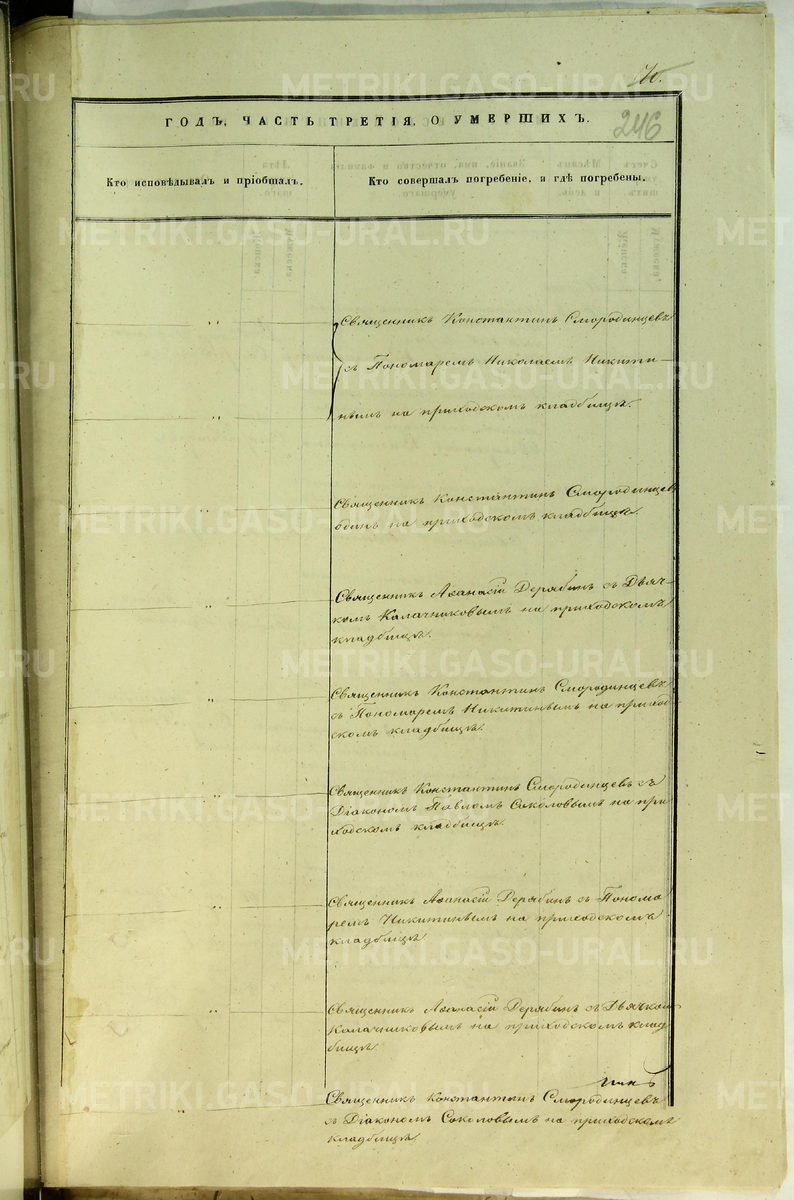 246
ГОДЪ, ЧАСТЬ ТРЕТІЯ, О УМЕРШИХЪ.
Кто исповѣдывалъ и пріобщалъ.
Кто совершалъ погребеніе, и гдѣ погребены.
Священникъ Константинъ Смородинцевъ
съ Пономаремъ Николаемъ Никити-
нымъ на приходскомъ кладбищѣ.
Священникъ Константинъ Смородинцев
одинъ на приходскомъ кладбищѣ.
Священникъ Аѳанасій Дерябинъ съ Дьяч-
комъ Калачниковымъ на приходскомъ
кладбищѣ.
Священникъ Константинъ Смородинцевъ
съ Пономаремъ Никитинымъ на приход-
скомъ кладбищѣ.
Священникъ Константинъ Смородинцевъ съ
Діакономъ Павломъ Соколовымъ на при
ходскомъ кладбищѣ.
Священникъ Аѳанасій Дерябинъ съ Понома
ремъ Никитинымъ на приходскомъ
кладбищѣ
Священникъ Аѳанасій Дерябинъ съ Дьячком
Калачниковымъ на приходскомъ клад
бищѣ.
Священникъ Константинъ Смородинцевъ
съ Діакономъ Соколовымъ на приходскомъ
кладбищѣ.
METRIKI.GASO-URAL.RU